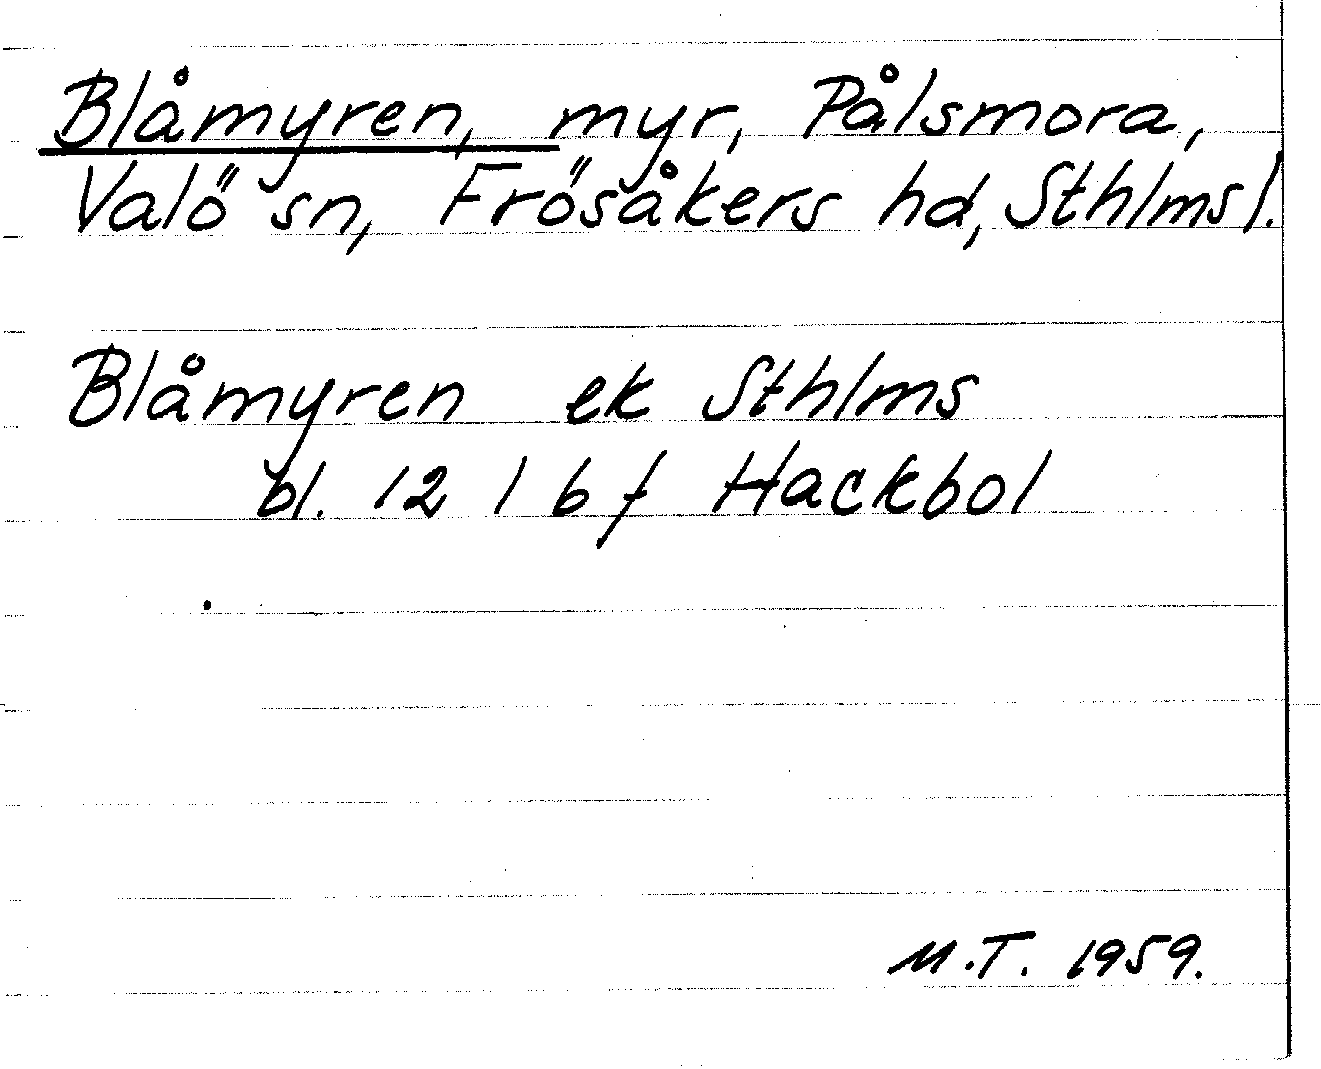 Blåmyren, myr, Pålsmora,
Valö sn, Frösåkers hd, Sthlms l.
Blåmyren ek Sthlms
bl. 12 I b f Hackbol
M.T. 1959.